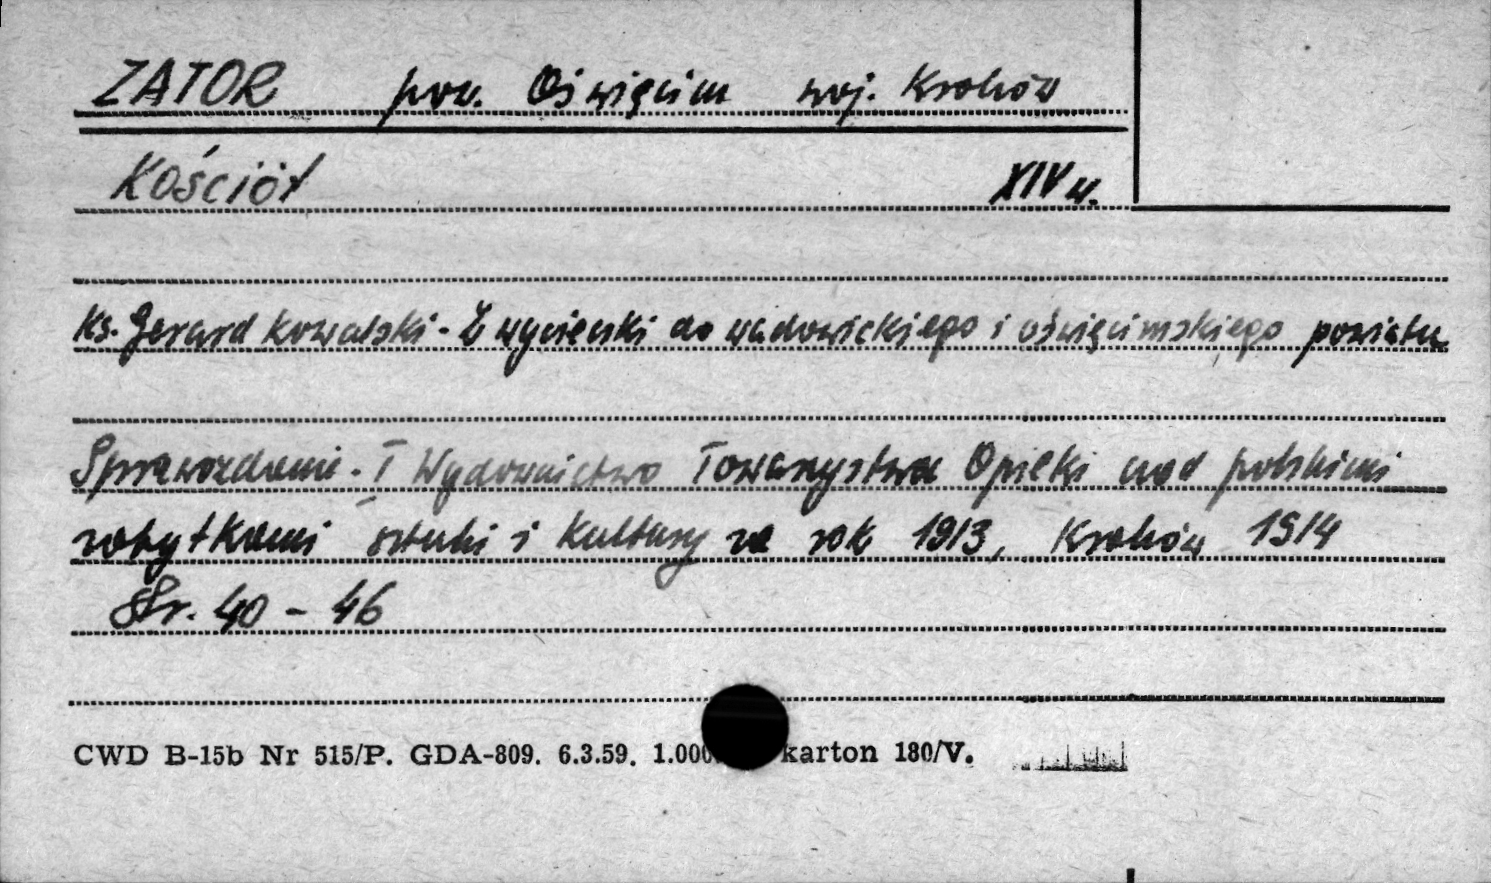 ZATOR pow. Oświęcim woj. Kraków
Kościół XIV w.
Ks. Gerard Kowalski - Z wycieczki do wadowickiego i oświęcimskiego powiatu
Sprawozdanie - I Wydawnictwo Towarzystwa Opieki nad polskimi
zabytkami sztuki i kultury za rok 1913, Kraków 1914
Str. 40 - 46
CWD B-15b Nr 515/P. GDA-809. 6.3.59. karton 180/V.